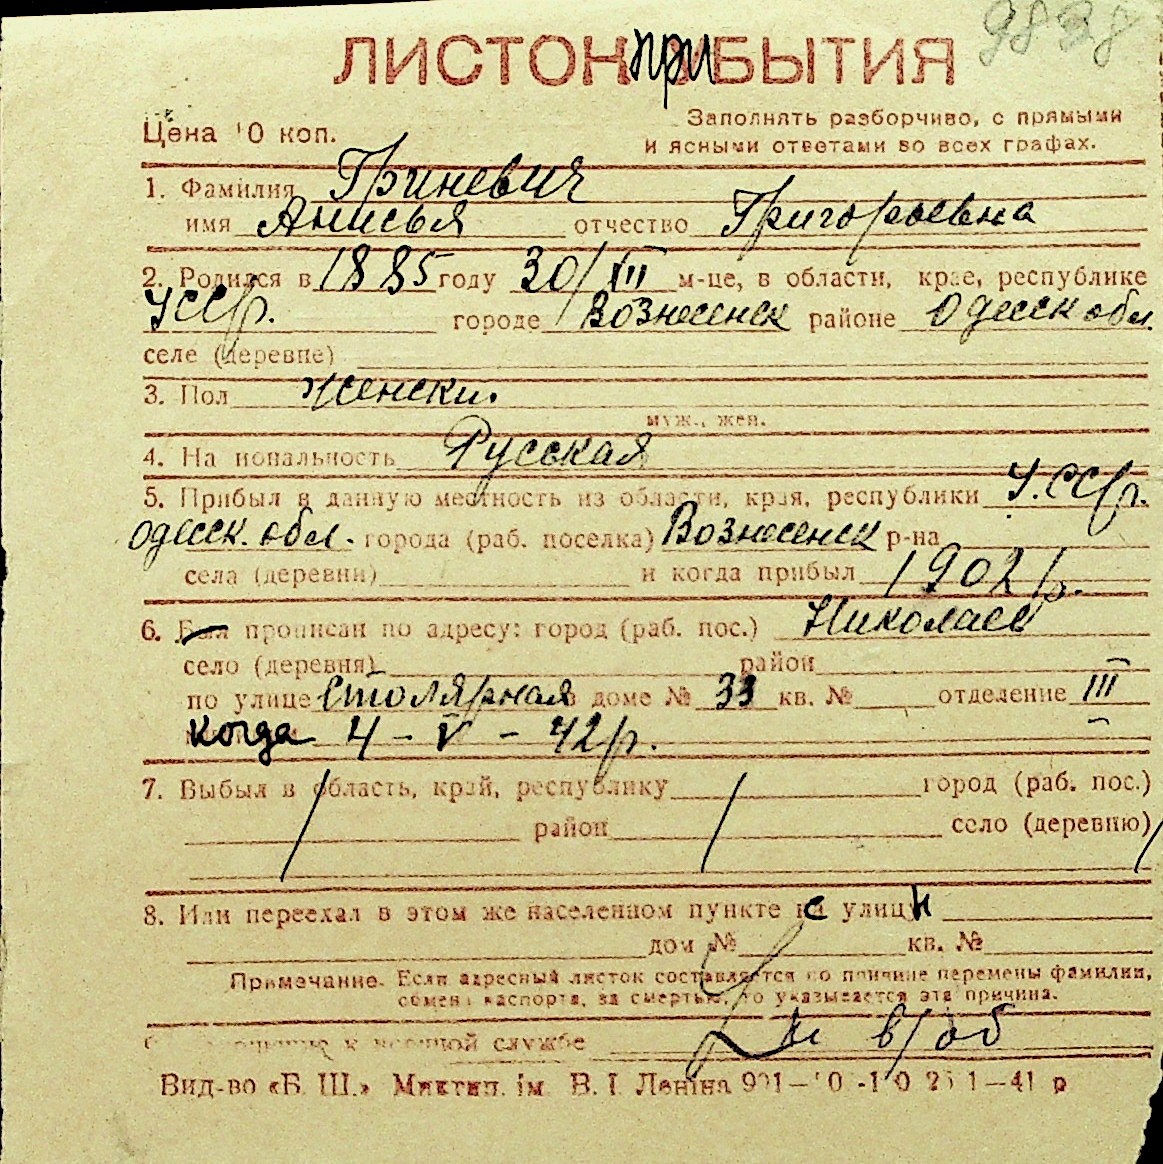 9838
ЛИСТОК приБЫТИЯ
Цена 10 коп.
Заполнять разборчиво, с прямыми
и ясными ответами во всех графах.
1. Фамилия Гриневич
имя Анисья отчество Григорьевна
2. Родился в 1885 году 30/XII м-це, в области, крае, республике
УССр. городе Вознесенск районе Одесск обл.
селе (деревне)
3. Пол женски.
муж., жен.
4. Национальность Русская
5. Прибыл в данную местность из области, края, республики У.ССр.
одесск. обл. города (раб. поселка) Вознесенск р-на
села (деревни) и когда прибыл 1902 р.
6. Был прописан по адресу: город (раб. пос.) Николаев
село (деревня) район
по улице Столярная в доме № 33 кв. № отделение III
когда 4 - V - 42 р.
7. Выбыл в область, край, республику город (раб. пос.)
район село (деревню)
8. Или переехал в этом же населенном пункте с улицы
дом № кв. №
Примечание. Если адресный листок составляется по причине перемены фамилии,
обмена паспорта, за смертью, то указывается эта причина.
к военной службе н в/об
Вид-во «Б. Ш.» Миктип. ім. В. І. Леніна